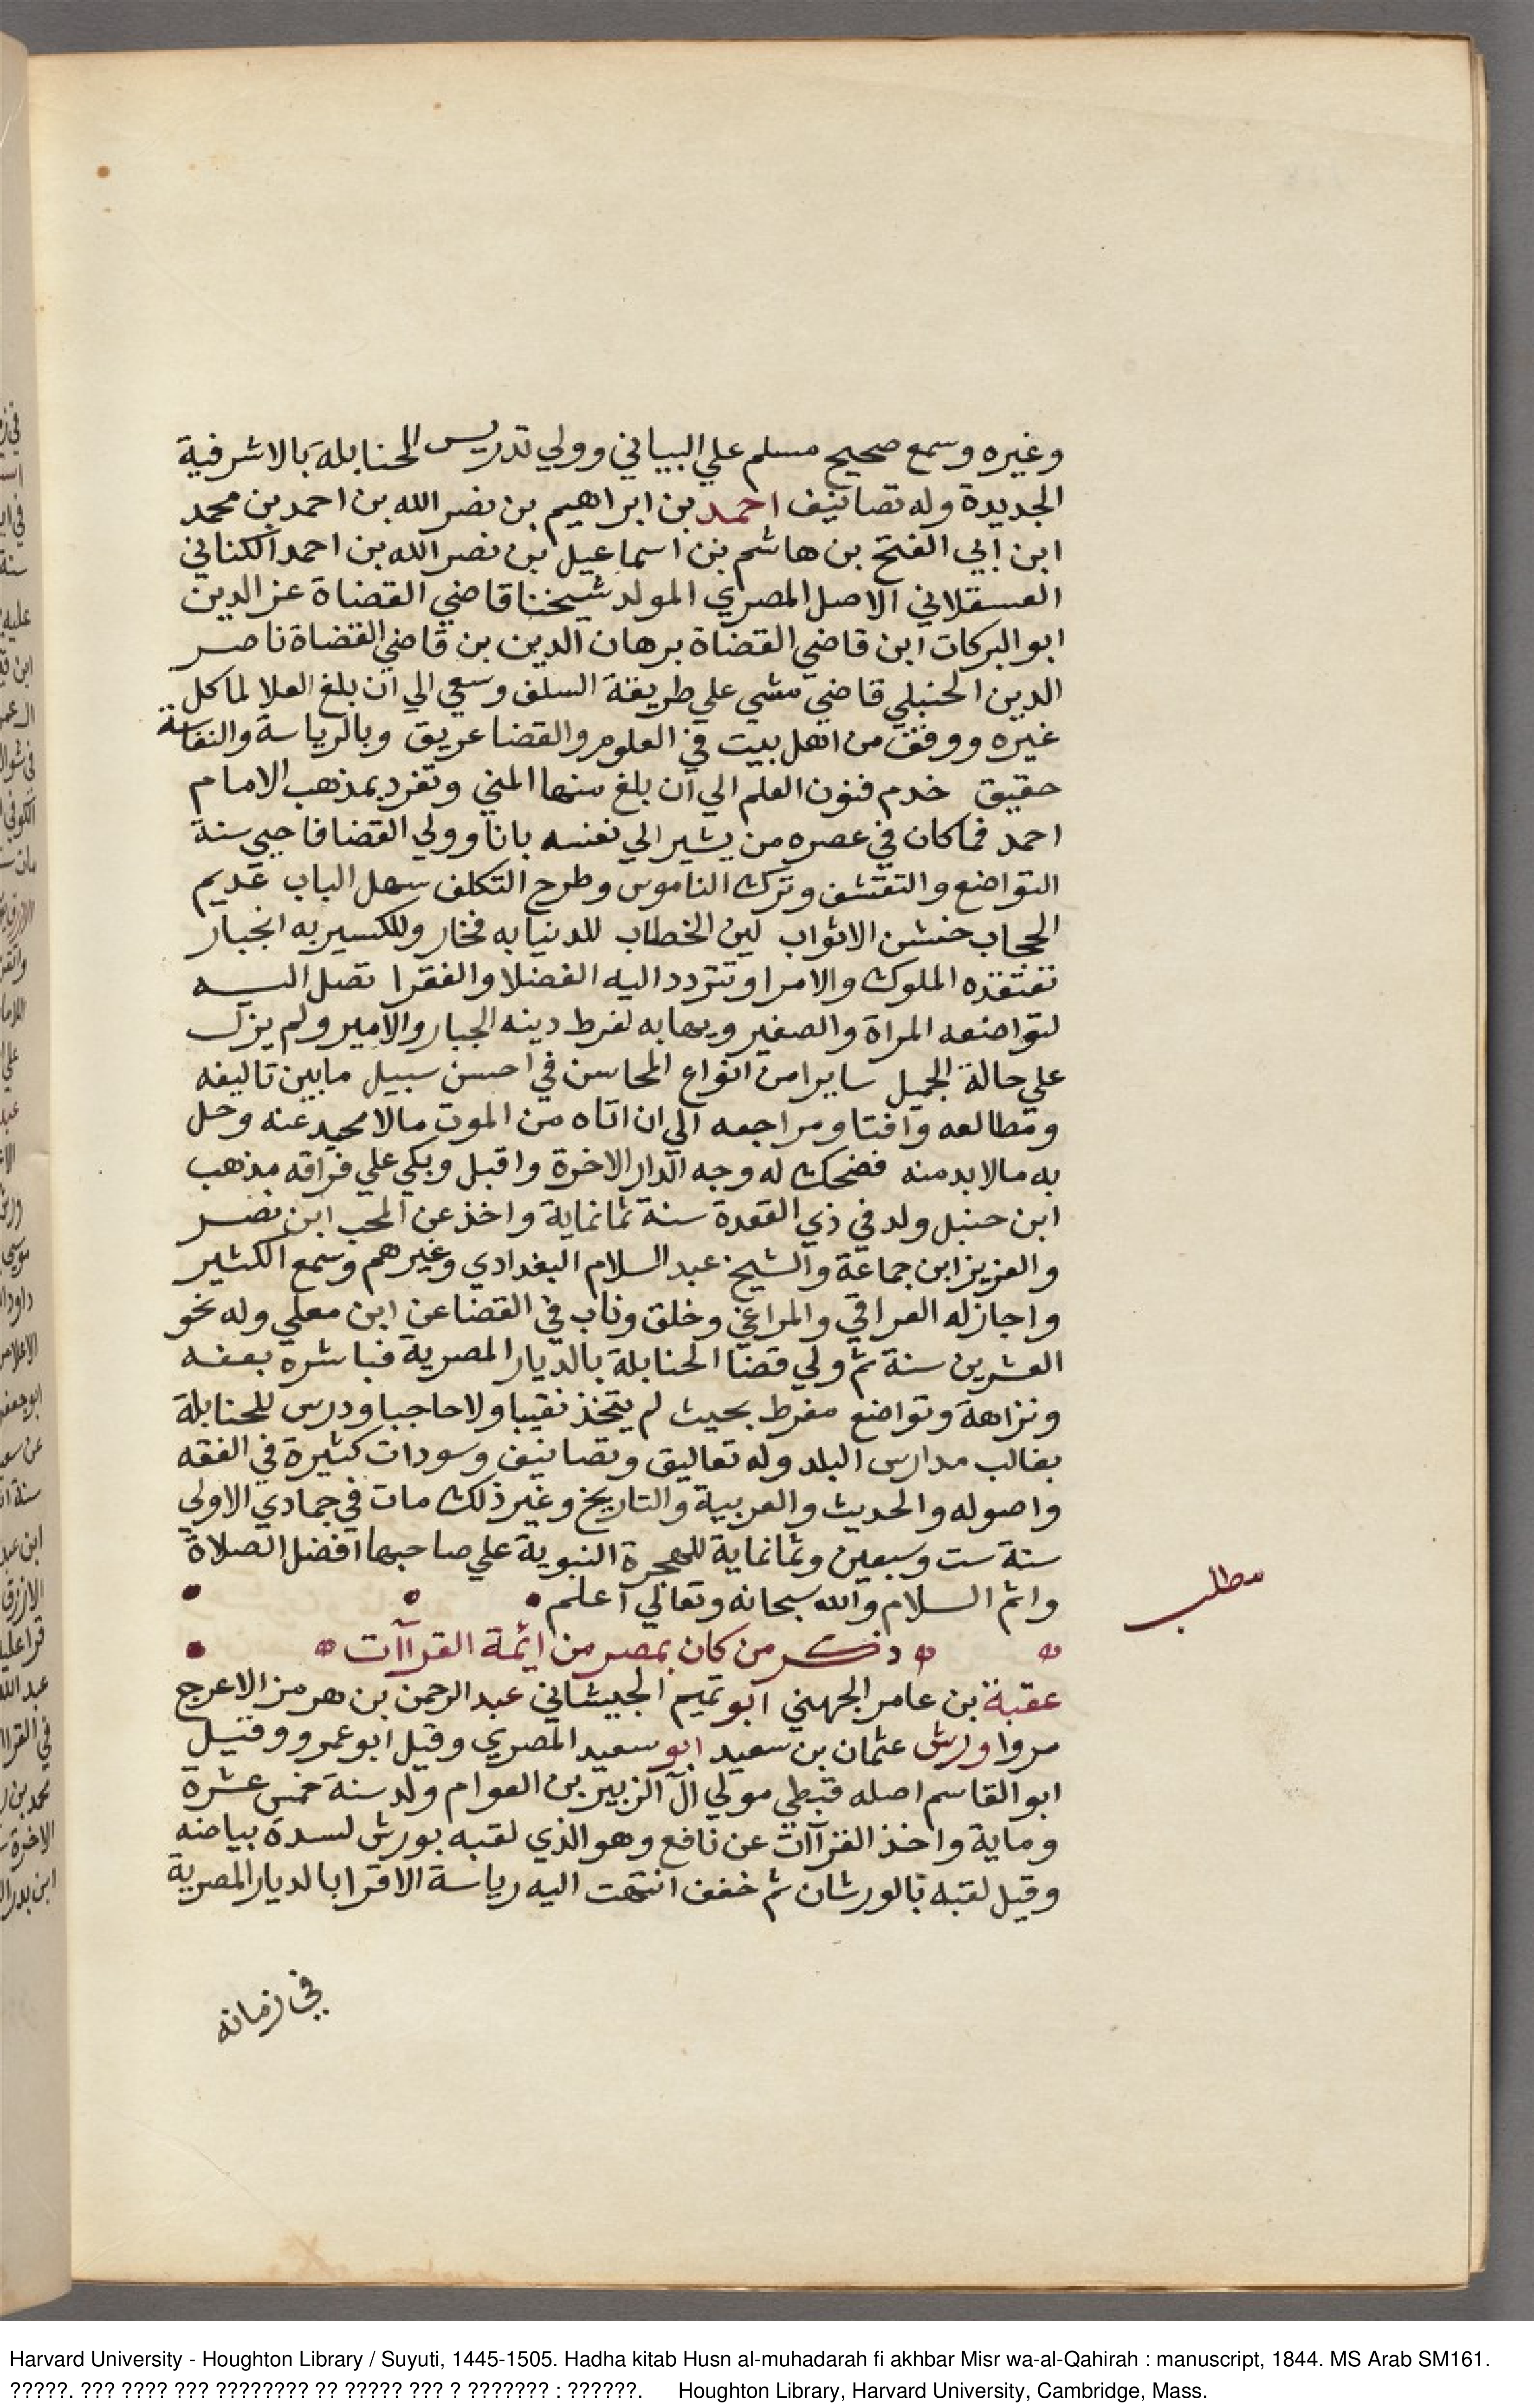 وغيره وسمع صحيح مسلم علي البياني وولي تدريس الحنابلة بالاشرفية
الجديدة وله تصانيف احمد بن ابراهيم بن نصر الله بن احمد بن محمد
ابن ابي الفتح بن هاشم بن اسماعيل بن نصر الله بن احمد الكناني
العسقلاني الاصل المصري المولد شيخنا قاضي القضاة عز الدين
ابو البركات ابن قاضي القضاة برهان الدين بن قاضي القضاة ناصر
الدين الحنبلي قاضي مشي علي طريقة السلف وسعي الي ان بلغ العلا لما كل
غيره ووقف من اهل بيت في العلوم والقضا عريق وبالرياسة والنفاسة
حقيق خدم فنون العلم الي ان بلغ منها المني وتفرد بمذهب الامام
احمد فما كان في عصره من يشير الي نفسه بانا وولي القضا فاحيي سنة
التواضع والتقشف وترك الناموس وطرح التكلف سهل الباب عديم
الحجاب خشن الاثواب لين الخطاب للدنيا به فخار وللكسير به انجبار
تفتقده الملوك والامرا وتتردد اليه الفضلا والفقرا تصل اليه
لتواضعه المراة والصغير ويهابه لفرط دينه الجبار والامير ولم يزل
علي حالة الجميل سايرا من انواع المحاسن في احسن سبيل ما بين تاليفه
ومطالعه وافتا ومراجعه الي ان اتاه من الموت مالا محيد عنه وحل
به مالا بد منه فضحك له وجه الدار الاخرة واقبل وبكي علي فراقه مذهب
ابن حنبل ولد في ذي القعدة سنة ثمانماية واخذ عن المحب ابن نصر
والعزيز ابن جماعة والشيخ عبد السلام البغدادي وغيرهم وسمع الكثير
واجاز له العراقي والمراغي وخلق وناب في القضا عن ابن معلي وله نحو
العشرين سنة ثم ولي قضا الحنابلة بالديار المصرية فباشره بعفه
ونزاهة وتواضع مفرط بحيث لم يتخذ نقيبا ولا حاجبا ودرس للحنابلة
بغالب مدارس البلد وله تعاليق وتصانيف وسودات كثيرة في الفقه
واصوله والحديث والعربية والتاريخ وغير ذلك مات في جمادي الاولي
سنة ست وسبعين وثمانماية للهجرة النبوية علي صاحبها افضل الصلاة
واتم السلام والله سبحانه وتعالي اعلم
مطلب
ذكر من كان بمصر من ايمة القراآت
عقبة بن عامر الجهني ابو تميم الجيشاني عبد الرحمن بن هرمز الاعرج
مروا ورش عثمان بن سعيد ابو سعيد المصري وقيل ابو عمرو وقيل
ابو القاسم اصله قبطي مولي ال الزبير بن العوام ولد سنة خمس عشرة
وماية واخذ القراآت عن نافع وهو الذي لقبه بورش لسدة بياضه
وقيل لقبه بالورشان ثم خفف انتهت اليه رياسة الاقرا بالديار المصرية
في زمانه
Harvard University - Houghton Library / Suyuti, 1445-1505. Hadha kitab Husn al-muhadarah fi akhbar Misr wa-al-Qahirah : manuscript, 1844. MS Arab SM161.
?????. ??? ???? ??? ???????? ?? ????? ??? ? ??????? : ??????. Houghton Library, Harvard University, Cambridge, Mass.